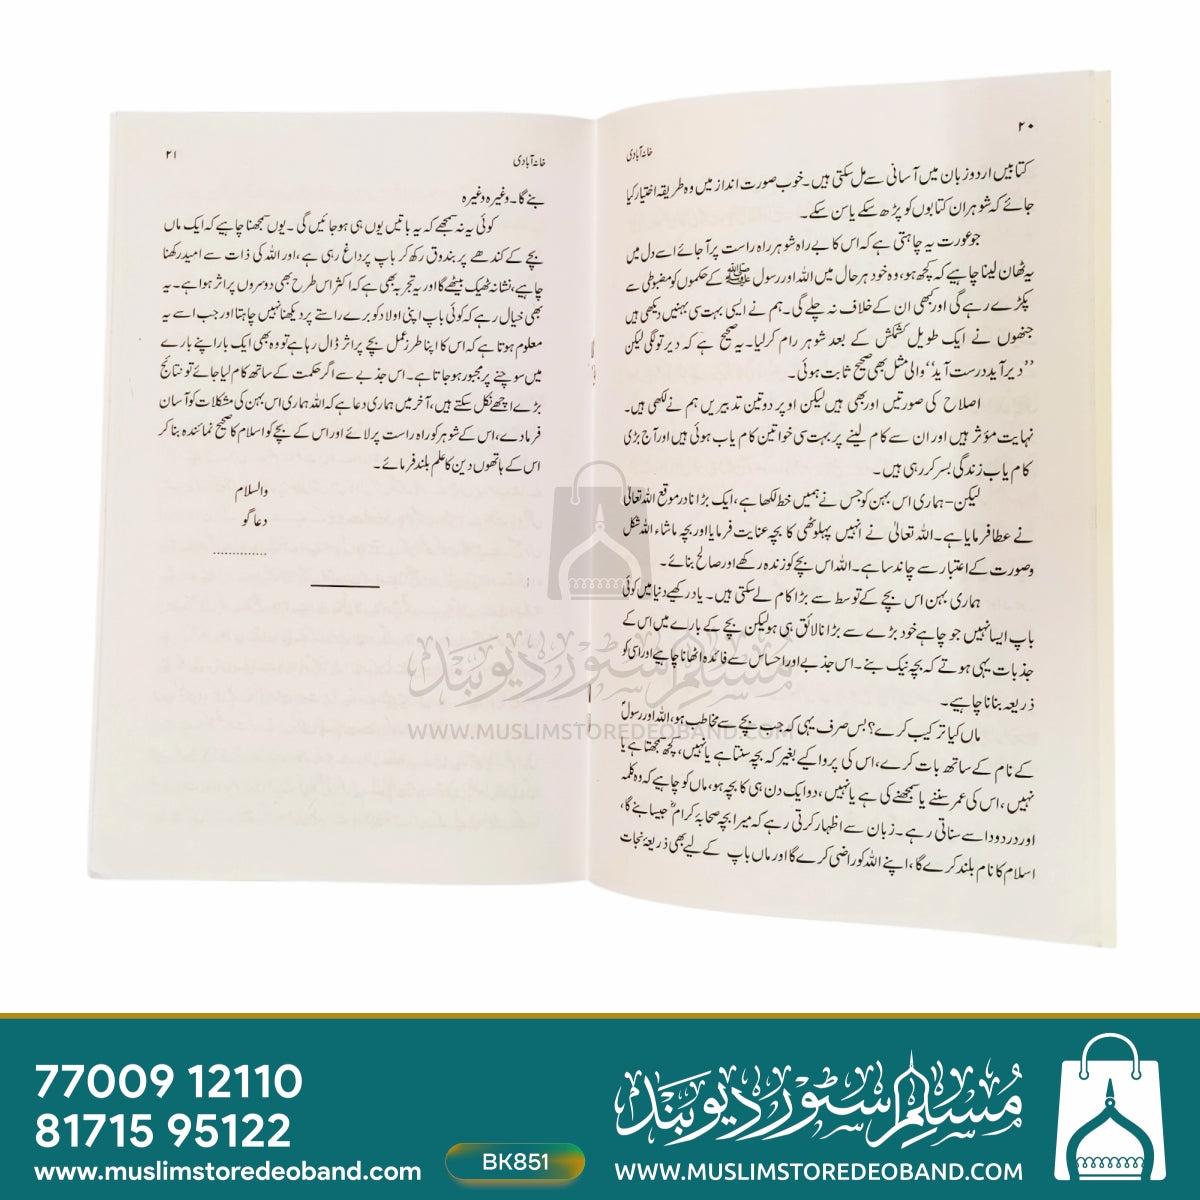 ۲۰
خانہ آبادی
کتابیں اردو زبان میں آسانی سے مل سکتی ہیں۔ خوب صورت انداز میں وہ طریقہ اختیار کیا
جائے کہ شوہر ان کتابوں کو پڑھ سکے یا سن سکے۔
جو عورت یہ چاہتی ہے کہ اس کا بے راہ شوہر راہ راست پر آجائے اسے دل میں
یہ ٹھان لینا چاہیے کہ کچھ ہو، وہ خود ہر حال میں اللہ اور رسول ﷺ کے حکموں کو مضبوطی سے
پکڑے رہے گی اور کبھی ان کے خلاف نہ چلے گی۔ ہم نے ایسی بہت سی بہنیں دیکھی ہیں
جنھوں نے ایک طویل کشمکش کے بعد شوہر رام کرلیا۔ یہ صحیح ہے کہ دیر تو لگی لیکن
’’دیر آید درست آید‘‘ والی مثل بھی صحیح ثابت ہوئی۔
اصلاح کی صورتیں اور بھی ہیں لیکن اوپر دو تین تدبیریں ہم نے لکھی ہیں۔
نہایت مؤثر ہیں اور ان سے کام لینے پر بہت سی خواتین کام یاب ہوئی ہیں اور آج بڑی
کام یاب زندگی بسر کر رہی ہیں۔
لیکن- ہماری اس بہن کو جس نے ہمیں خط لکھا ہے، ایک بڑا نادر موقع اللہ تعالیٰ
نے عطا فرمایا ہے۔ اللہ تعالیٰ نے انہیں پہلوٹھی کا بچہ عنایت فرمایا اور بچہ ماشاء اللہ شکل
وصورت کے اعتبار سے چاند سا ہے۔ اللہ اس بچے کو زندہ رکھے اور صالح بنائے۔
ہماری بہن اس بچے کے توسط سے بڑا کام لے سکتی ہیں۔ یاد رکھیے دنیا میں کوئی
باپ ایسا نہیں جو چاہے خود بڑے سے بڑا نالائق ہی ہو لیکن بچے کے بارے میں اس کے
جذبات یہی ہوتے کہ بچہ نیک بنے۔ اس جذبے اور احساس سے فائدہ اٹھانا چاہیے اور اسی کو
ذریعہ بنانا چاہیے۔
ماں کیا ترکیب کرے؟ بس صرف یہی کہ جب بچے سے مخاطب ہو، اللہ اور رسولؐ
کے نام کے ساتھ بات کرے، اس کی پروا کیے بغیر کہ بچہ سنتا ہے یا نہیں، کچھ سمجھتا ہے یا
نہیں، اس کی عمر سننے یا سمجھنے کی ہے یا نہیں، دو ایک دن ہی کا بچہ ہو، ماں کو چاہیے کہ وہ کلمہ
اور درود اسے سناتی رہے۔ زبان سے اظہار کرتی رہے کہ میرا بچہ صحابۂ کرامؓ جیسا بنے گا،
اسلام کا نام بلند کرے گا، اپنے اللہ کو راضی کرے گا اور ماں باپ کے لیے بھی ذریعۂ نجات
۲۱
خانہ آبادی
بنے گا۔ وغیرہ وغیرہ
کوئی یہ نہ سمجھے کہ یہ باتیں یوں ہی ہو جائیں گی۔ یوں سمجھنا چاہیے کہ ایک ماں
بچے کے کندھے پر بندوق رکھ کر باپ پر داغ رہی ہے، اور اللہ کی ذات سے امید رکھنا
چاہیے، نشانہ ٹھیک بیٹھے گا اور یہ تجربہ بھی ہے کہ اکثر اس طرح بھی دوسروں پر اثر ہوا ہے۔ یہ
بھی خیال رہے کہ کوئی باپ اپنی اولاد کو برے راستے پر دیکھنا نہیں چاہتا اور جب اسے یہ
معلوم ہوتا ہے کہ اس کا اپنا طرز عمل بچے پر اثر ڈال رہا ہے تو وہ بھی ایک بار اپنے بارے
میں سوچنے پر مجبور ہو جاتا ہے۔ اس جذبے سے اگر حکمت کے ساتھ کام لیا جائے تو نتائج
بڑے اچھے نکل سکتے ہیں، آخر میں ہماری دعا ہے کہ اللہ ہماری اس بہن کی مشکلات کو آسان
فرمادے، اس کے شوہر کو راہ راست پر لائے اور اس کے بچے کو اسلام کا صحیح نمائندہ بنا کر
اس کے ہاتھوں دین کا علم بلند فرمائے۔
والسلام
دعا گو
..............
مسلم سٹور دیوبند
WWW.MUSLIMSTOREDEOBAND.COM
77009 12110
81715 95122
www.muslimstoredeoband.com
BK851
مسلم سٹور دیوبند
WWW.MUSLIMSTOREDEOBAND.COM